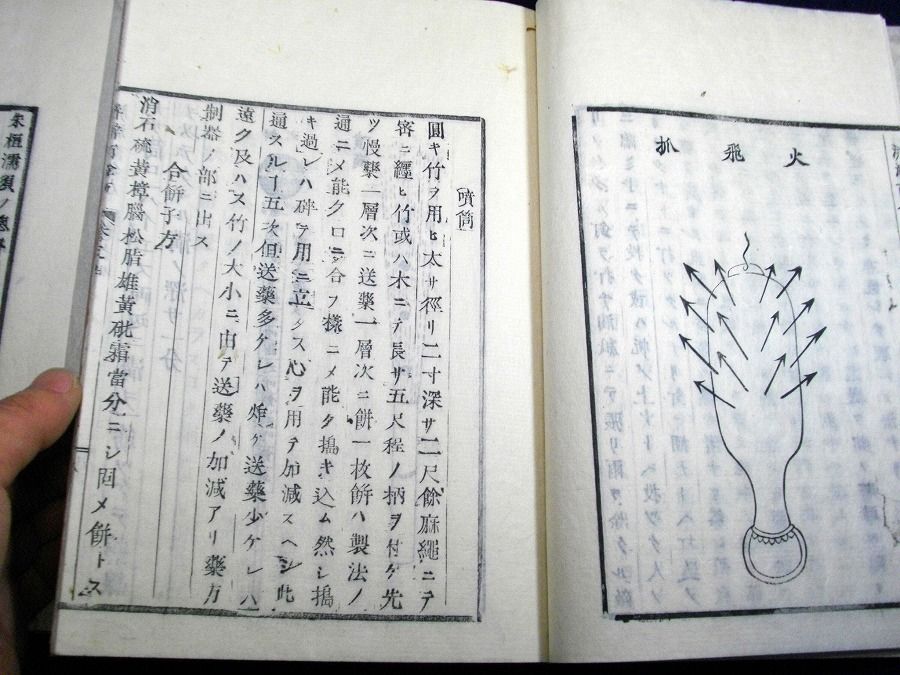 火飛抓
噴筒
圓キ竹ヲ用ヒ太サ徑リ二寸深サ二尺餘麻繩ニテ
密ニ纒ヒ竹或ハ木ニテ長サ五尺程ノ柄ヲ付ケ先
ツ慢藥一層次ニ送藥一層次ニ餅一枚餅ハ製法ノ
通ニメ能ク口ニ合フ樣ニメ能ク搗キ込ム然シ搗
キ過レハ碎テ用ニ立タス心ヲ用テ加減スヘシ此
通スルヿ五次但送藥多ケレハ炮ケ送藥少ケレハ
遠ク及ハス竹ノ大小ニ由テ送藥ノ加減アリ藥方
制器ノ部ニ出ス
合餅子方
消石硫黄樟腦松脂雄黄砒霜當分ニシ固メ餅トス
朱桓濡須ノ